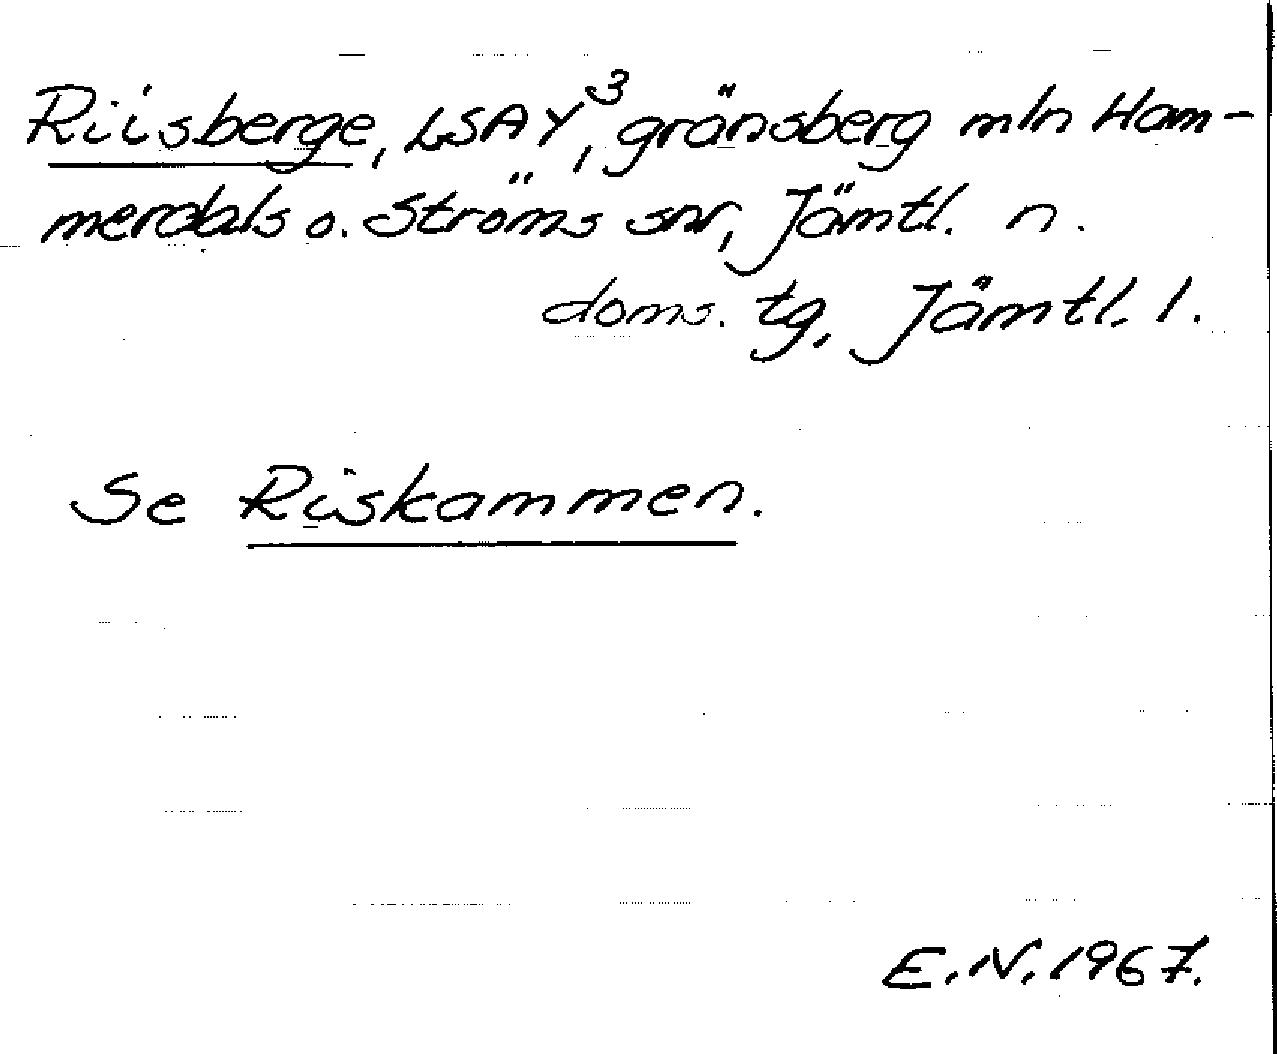 Riisberge, LSAY³, gränsberg mln Ham-
merdals o. Ströms snr, Jämtl. n.
doms. tg, Jämtl. l.
Se Riskammen.
E.N. 1967.